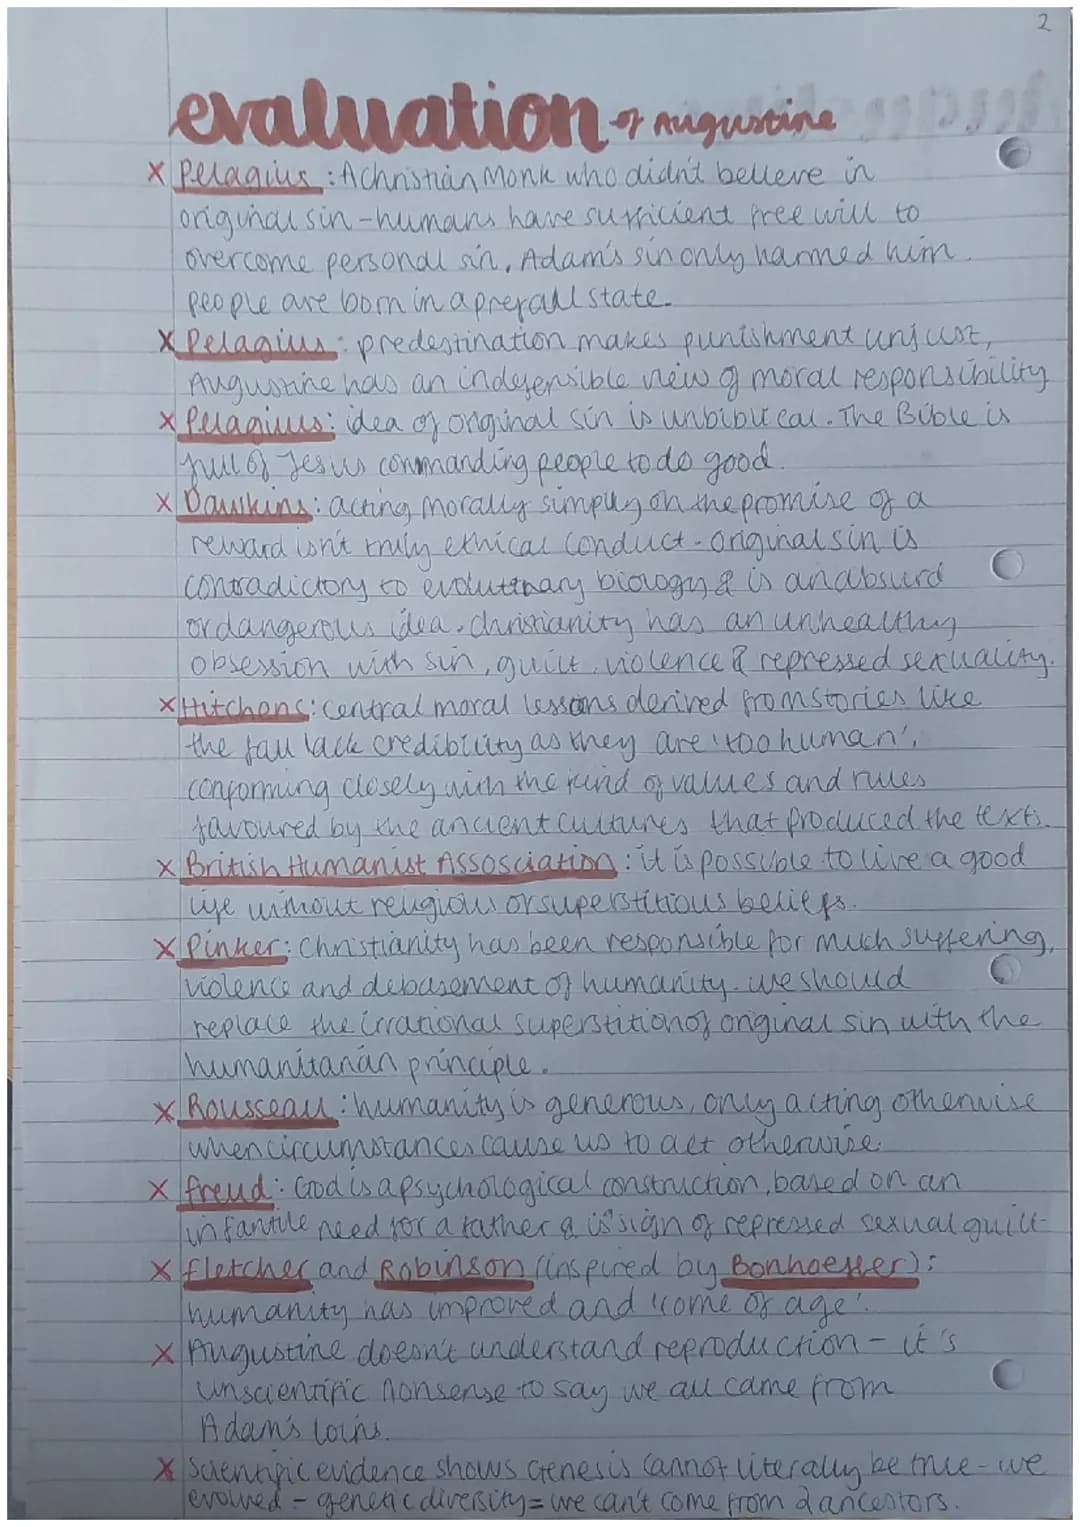 2
evaluation of Augustine
x Pelagius : A christian Monk who didn't believe in
original sin - humans have sufficient free will to
overcome personal sin. Adam's sin only harmed him.
people are born in a prefall state.
x Pelagius : predestination makes punishment unjust,
Augustine has an indefensible view of moral responsibility
x Pelagius : idea of original sin is unbiblical. The Bible is
full of Jesus commanding people to do good.
x Dawkins : acting morally simply on the promise of a
reward isn't truly ethical conduct - original sin is
contradictory to evolutinary biology & is an absurd
or dangerous idea. christianity has an unhealthy
obsession with sin, guilt, violence & repressed sexuality.
x Hitchons : central moral lessons derived from stories like
the fall lack credibility as they are 'too human',
conforming closely with the kind of values and rules
favoured by the ancient cultures that produced the texts.
x British Humanist Assosciation : it is possible to live a good
life without religious or superstitious beliefs.
x Pinker : Christianity has been responsible for much suffering,
violence and debasement of humanity. we should
replace the irrational superstition of original sin with the
humanitarian principle.
x Rousseau : humanity is generous, only acting otherwise
when circumstances cause us to act otherwise.
x freud : God is a psychological construction, based on an
infantile need for a father & is sign of repressed sexual guilt.
x fletcher and Robinson (inspired by Bonhoeffer) :
humanity has improved and 'come of age'.
x Augustine doesn't understand reproduction - it's
unscientific nonsense to say we all came from
Adam's loins.
x Scientific evidence shows Genesis cannot literally be true - we
evolved - genetic diversity = we can't come from 2 ancestors.